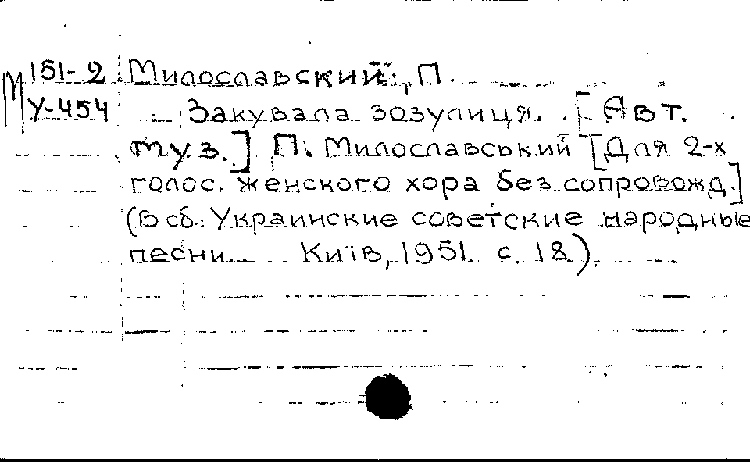 М 151-2 Милославский, П.
У-454 Закувала зозулиця. [Авт.
муз.] П. Милославський [Для 2-х
голос. женского хора без сопровожд.]
(В сб.: Украинские советские народные
песни Київ, 1951. с. 18).